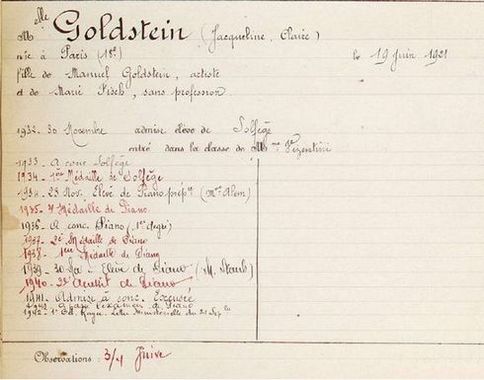 Melle Goldstein (Jacqueline, Claire)
née à Paris (18e) le 19 Juin 1921
fille de Manuel Goldstein, artiste
et de Marie Fisch, sans profession
1932. 30 Novembre admise élève de Solfège
entré dans la classe de Mme Vizentini
1933 - A conc. Solfège
1934 - 1ère Médaille de Solfège
1934 - 23 Nov. Elève de Piano prép. (Mme Alem)
1935 - Médaille de Piano
1936 - A conc. Piano (1er degré)
1937 - 2e Médaille de Piano
1938 - 1ère Médaille de Piano
1939 - 30 - Elève de Piano (M. Staub)
1940 - 2d Accessit de Piano
1941 - Admise à conc. Excusée
l'examen de Piano
1942 - 1er Oct. Rayée. Lettre Ministérielle du 21 Sept.
Observations : 3/4 Juive